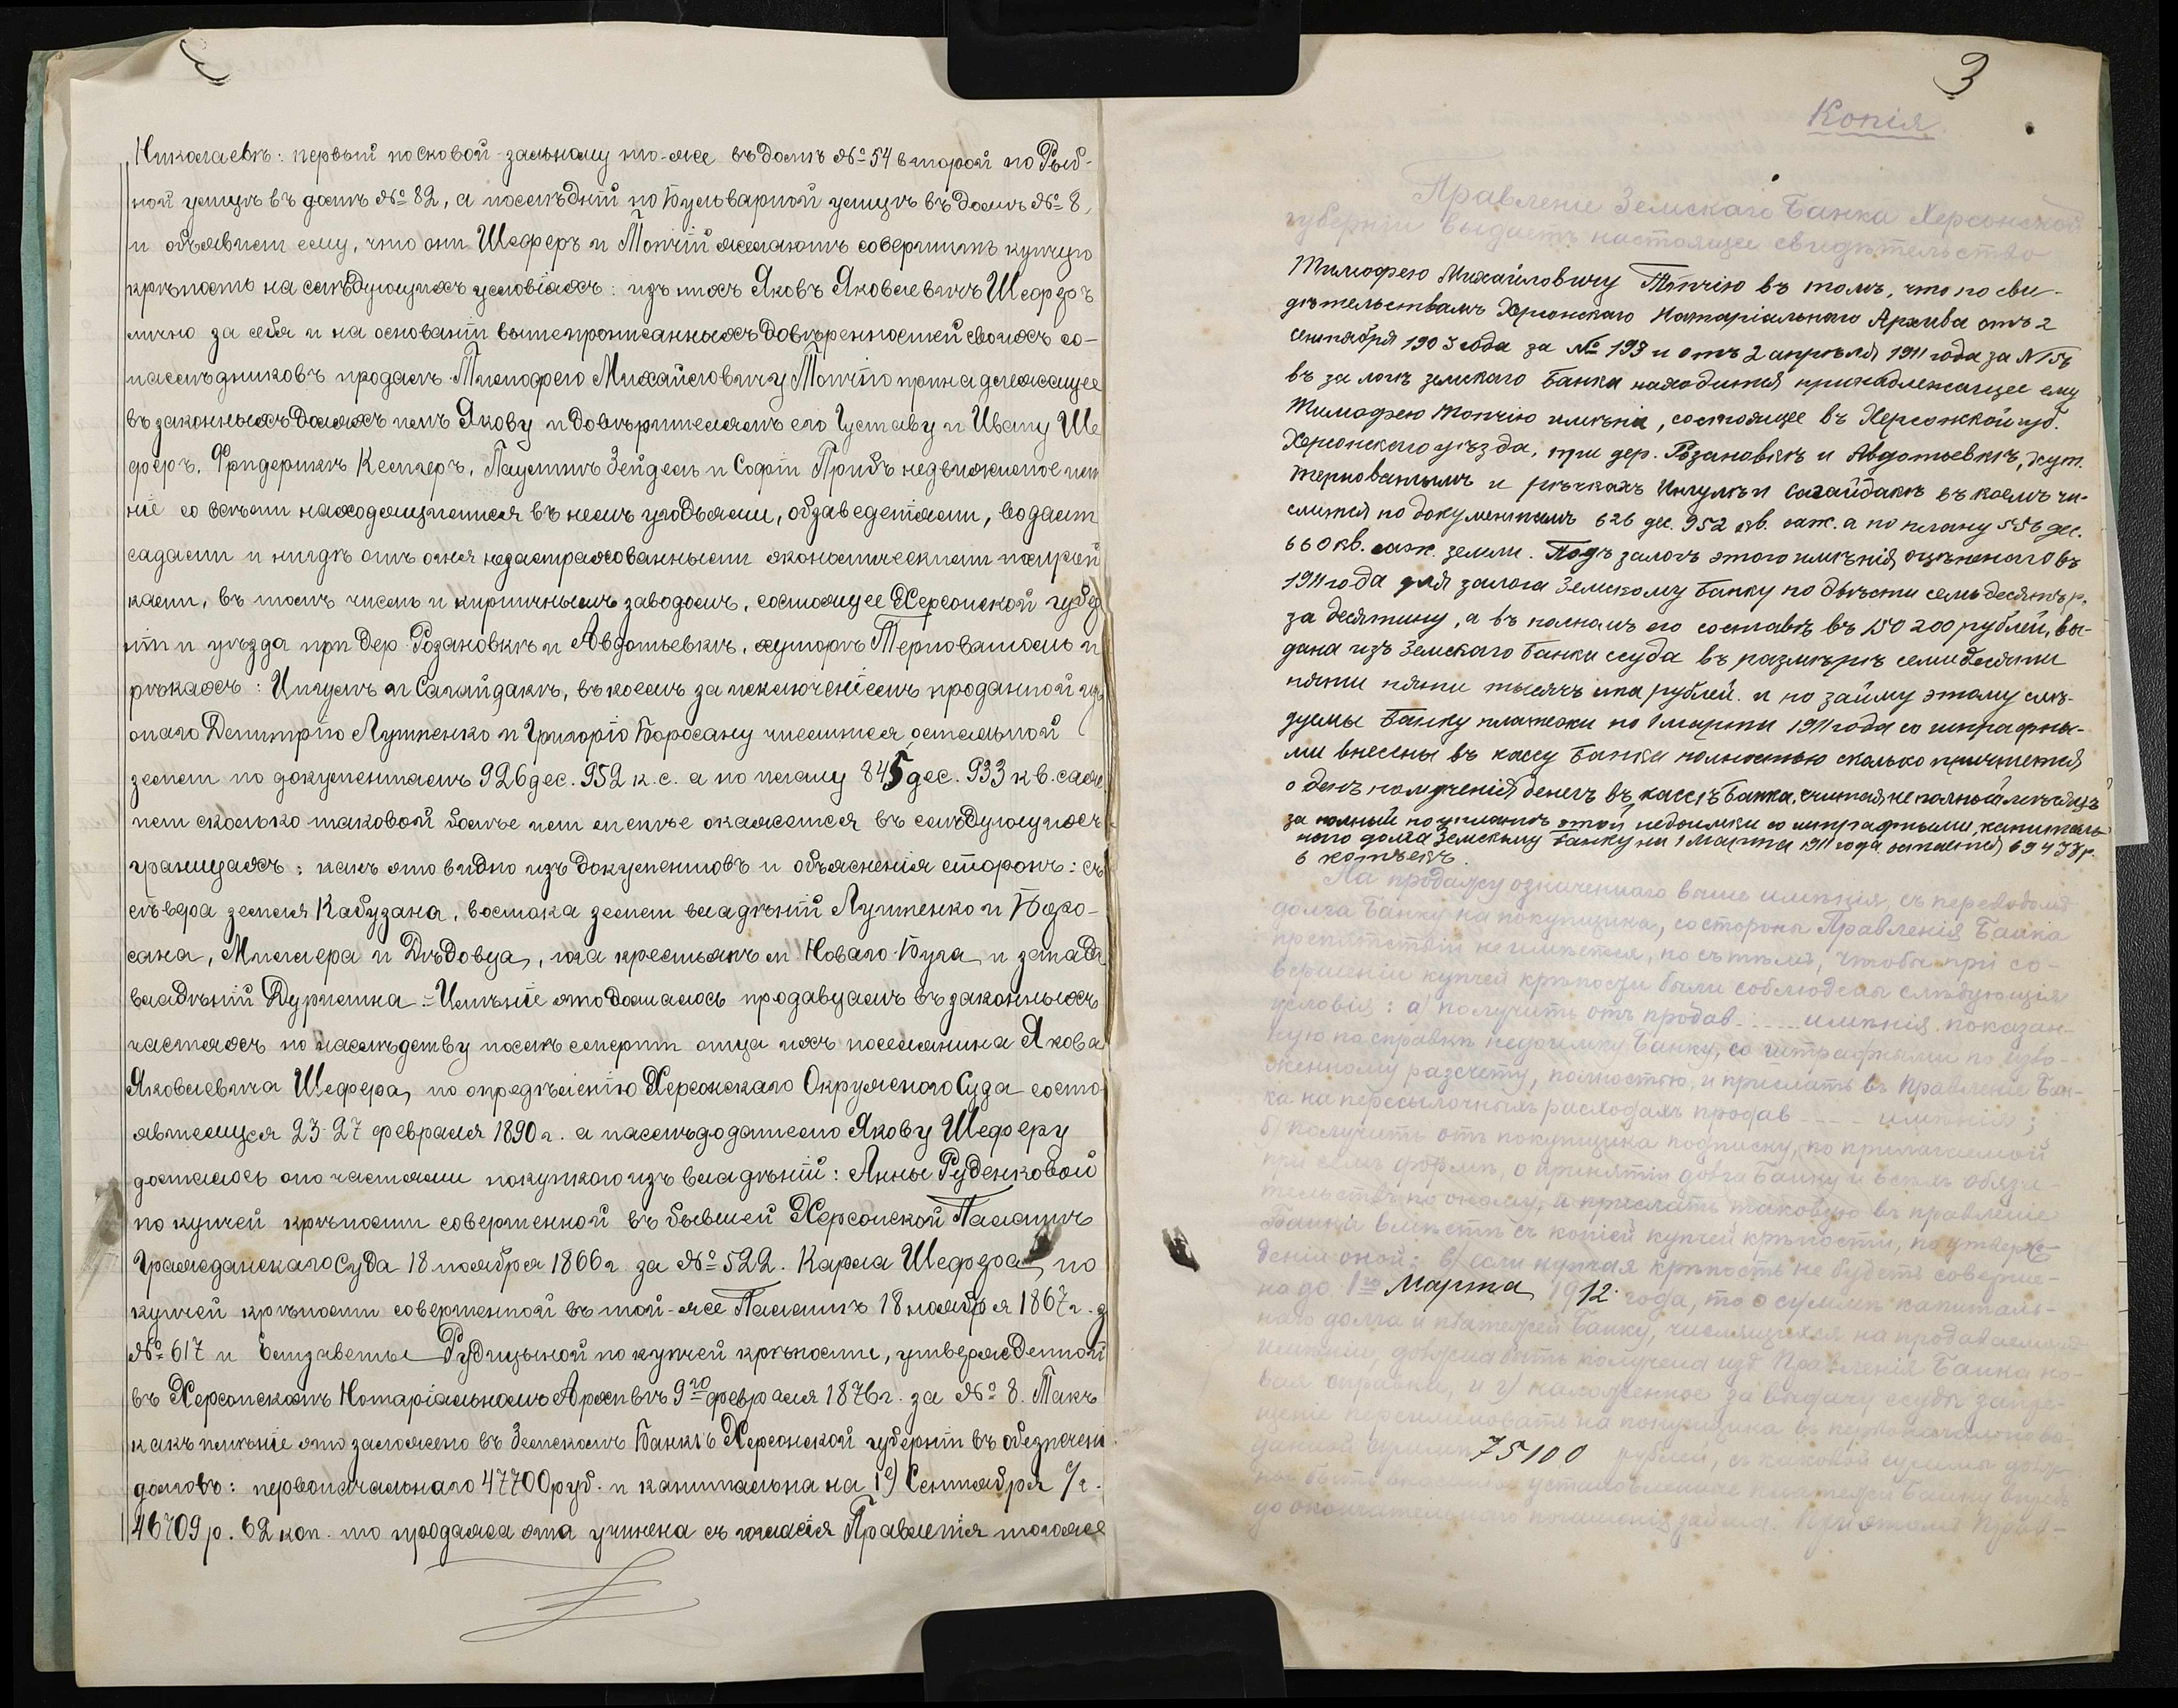 Николаевѣ: первый по сковой-зальному то-же въ домѣ № 54 второй по Рыб-
ной улицѣ въ домѣ № 82, а послѣдній по Бульварной улицѣ въ домѣ № 8,
и объявили ему, что они Шеферъ и Топчій желаютъ совершить купчую
крѣпость на слѣдующихъ условіяхъ: изъ нихъ Яковъ Яковлевичъ Шеферъ
лично за себя и на основаніи вышепрописанныхъ довѣренностей своихъ со-
наслѣдниковъ продалъ Тимофею Михайловичу Топчію принадлежащее
въ законныхъ доляхъ имъ Якову и довѣрителямъ его Густаву и Ивану Ше
феръ, Фридерикѣ Кемлеръ, Паулинѣ Зейдель и Софіи Прибъ недвижимое имѣ
ніе со всѣми находящимися въ немъ угодьями, обзаведеніями, водами
садами и нигдѣ отъ огня незастрахованными экономическими построй
ками, въ томъ числѣ и кирпичнымъ заводомъ, состоящее Херсонской губер
ніи и уѣзда при дер. Розановкѣ и Авдотьевкѣ, хуторѣ Терноватомъ и
рѣкахъ: Ингулѣ и Сагайдакѣ, въ коемъ за исключеніемъ проданной изъ
онаго Дмитрію Лутненко и Григорію Боросану числится остальной
земли по документамъ 926 дес. 952 к. с. а по плану 845 дес. 933 кв. саж.
или сколько таковой болѣе или менѣе окажется въ слѣдующихъ
границахъ: какъ это видно изъ документовъ и объясненія сторонъ: съ
сѣвера земля Кабузана, востока земли владѣній Лутненко и Боро-
сана, Миллера и Дѣдовца, юга крестьянъ м. Новаго-Буга и запада
владѣній Дурилина. Имѣніе это досталось продавцамъ въ законныхъ
частяхъ по наслѣдству послѣ смерти отца ихъ поселянина Якова
Яковлевича Шефера, по опредѣленію Херсонскаго Окружного Суда состо
явшемуся 23-27 февраля 1890 г. а наслѣдодателю Якову Шеферу
досталось оно частями покупкою изъ владѣній: Анны Руденковой
по купчей крѣпости совершенной въ бывшей Херсонской Палатѣ
Гражданскаго Суда 18 ноября 1866 г за № 522. Карла Шефера, по
купчей крѣпости совершенной въ той-же Палатѣ 18 ноября 1867 г. з
№ 617 и Елизаветы Рудицыной по купчей крѣпости, утвержденной
въ Херсонскомъ Нотаріальномъ Архивѣ 9го февраля 1876 г. за № 8. Такъ
какъ имѣніе это заложено въ Земскомъ Банкѣ Херсонской губерніи въ обезпечені
долговъ: первоначальнаго 47700 руб. и капитальна на 1е Сентября с/г.
46709 р. 62 коп. то продажа эта учинена съ согласія Правленія того же
3
Копія
Правленіе Земскаго Банка Херсонской
губерніи выдаетъ настоящее свидѣтельство
Тимофею Михайловичу Топчію въ томъ, что по сви-
дѣтельствамъ Херсонскаго Нотаріальнаго Архива отъ 2
сентября 1903 года за № 193 и отъ 2 апрѣля 1911 года за №
въ залогѣ земскаго Банка находится принадлежащее ему
Тимофею Топчію имѣніе, состоящее въ Херсонской губ.
Херсонскаго уѣзда, при дер. Розановкѣ и Авдотьевкѣ, хут.
Терноватымъ и рѣчкахъ Ингулѣ и Сагайдакѣ въ коемъ чи-
слится по документамъ 626 дес. 952 кв. саж. а по плану 556 дес.
660 кв. саж. земли. Подъ залогъ этого имѣнія оцѣненаго въ
1911 года для залога Земскому Банку по двѣсти семьдесятъ р.
за десятину, а въ полномъ его составѣ въ 150 200 рублей, вы-
дана изъ Земскаго Банка ссуда въ размѣрѣ семидесяти
пяти пяти тысячъ ста рублей. и по займу этому слѣ-
дуемые Банку платежи по 1 марта 1911 года со штрафны-
ми внесены въ кассу Банка полностью сколько причтется
о день полученія денегъ въ кассѣ Банка, считая не полный мѣсяцъ
за полный по уплатѣ этой недоимки со штрафными, капиталь-
ного долга Земскому Банку на 1 Марта 1911 года остается 69438 р.
6 копѣекъ.
На продажу означеннаго выше имѣнія, съ переводомъ
долга Банку на покупщика, со стороны Правленія Банка
препятствій не имѣется, но съ тѣмъ, чтобы при со-
вершеніи купчей крѣпости были соблюдены слѣдующія
условія: а) получить отъ продав..... имѣнія показан-
ную по справкѣ недоимку Банку, со штрафными по изло-
женному разсчету, полностью, и прислать въ Правленіе Бан-
ка на пересылочныхъ расходахъ продав---- имѣнія;
б) получить отъ покупщика подписку, по прилагаемой
при семъ формѣ, о принятіи долга Банку и всѣхъ обяза-
тельствъ по оному, и прислать таковую въ правленіе
Банка вмѣстѣ съ копіей купчей крѣпости, по утверж-
деніи оной; в) если купчая крѣпость не будетъ соверше-
на до 1го Марта 1912 года, то о суммѣ капиталь-
наго долга и платежей Банку, числящихся на продаваемомъ
имѣніи, должна быть получена изъ Правленія Банка но-
вая справка, и г) наложенное за выдачу ссуды запре-
щеніе переименовать на покупщика въ первоначально вы-
данной суммѣ 75100 рублей, съ каковой суммы долж-
ны быть установленные платежи Банку впредь
до окончательнаго погашенія займа. При этомъ Прав-